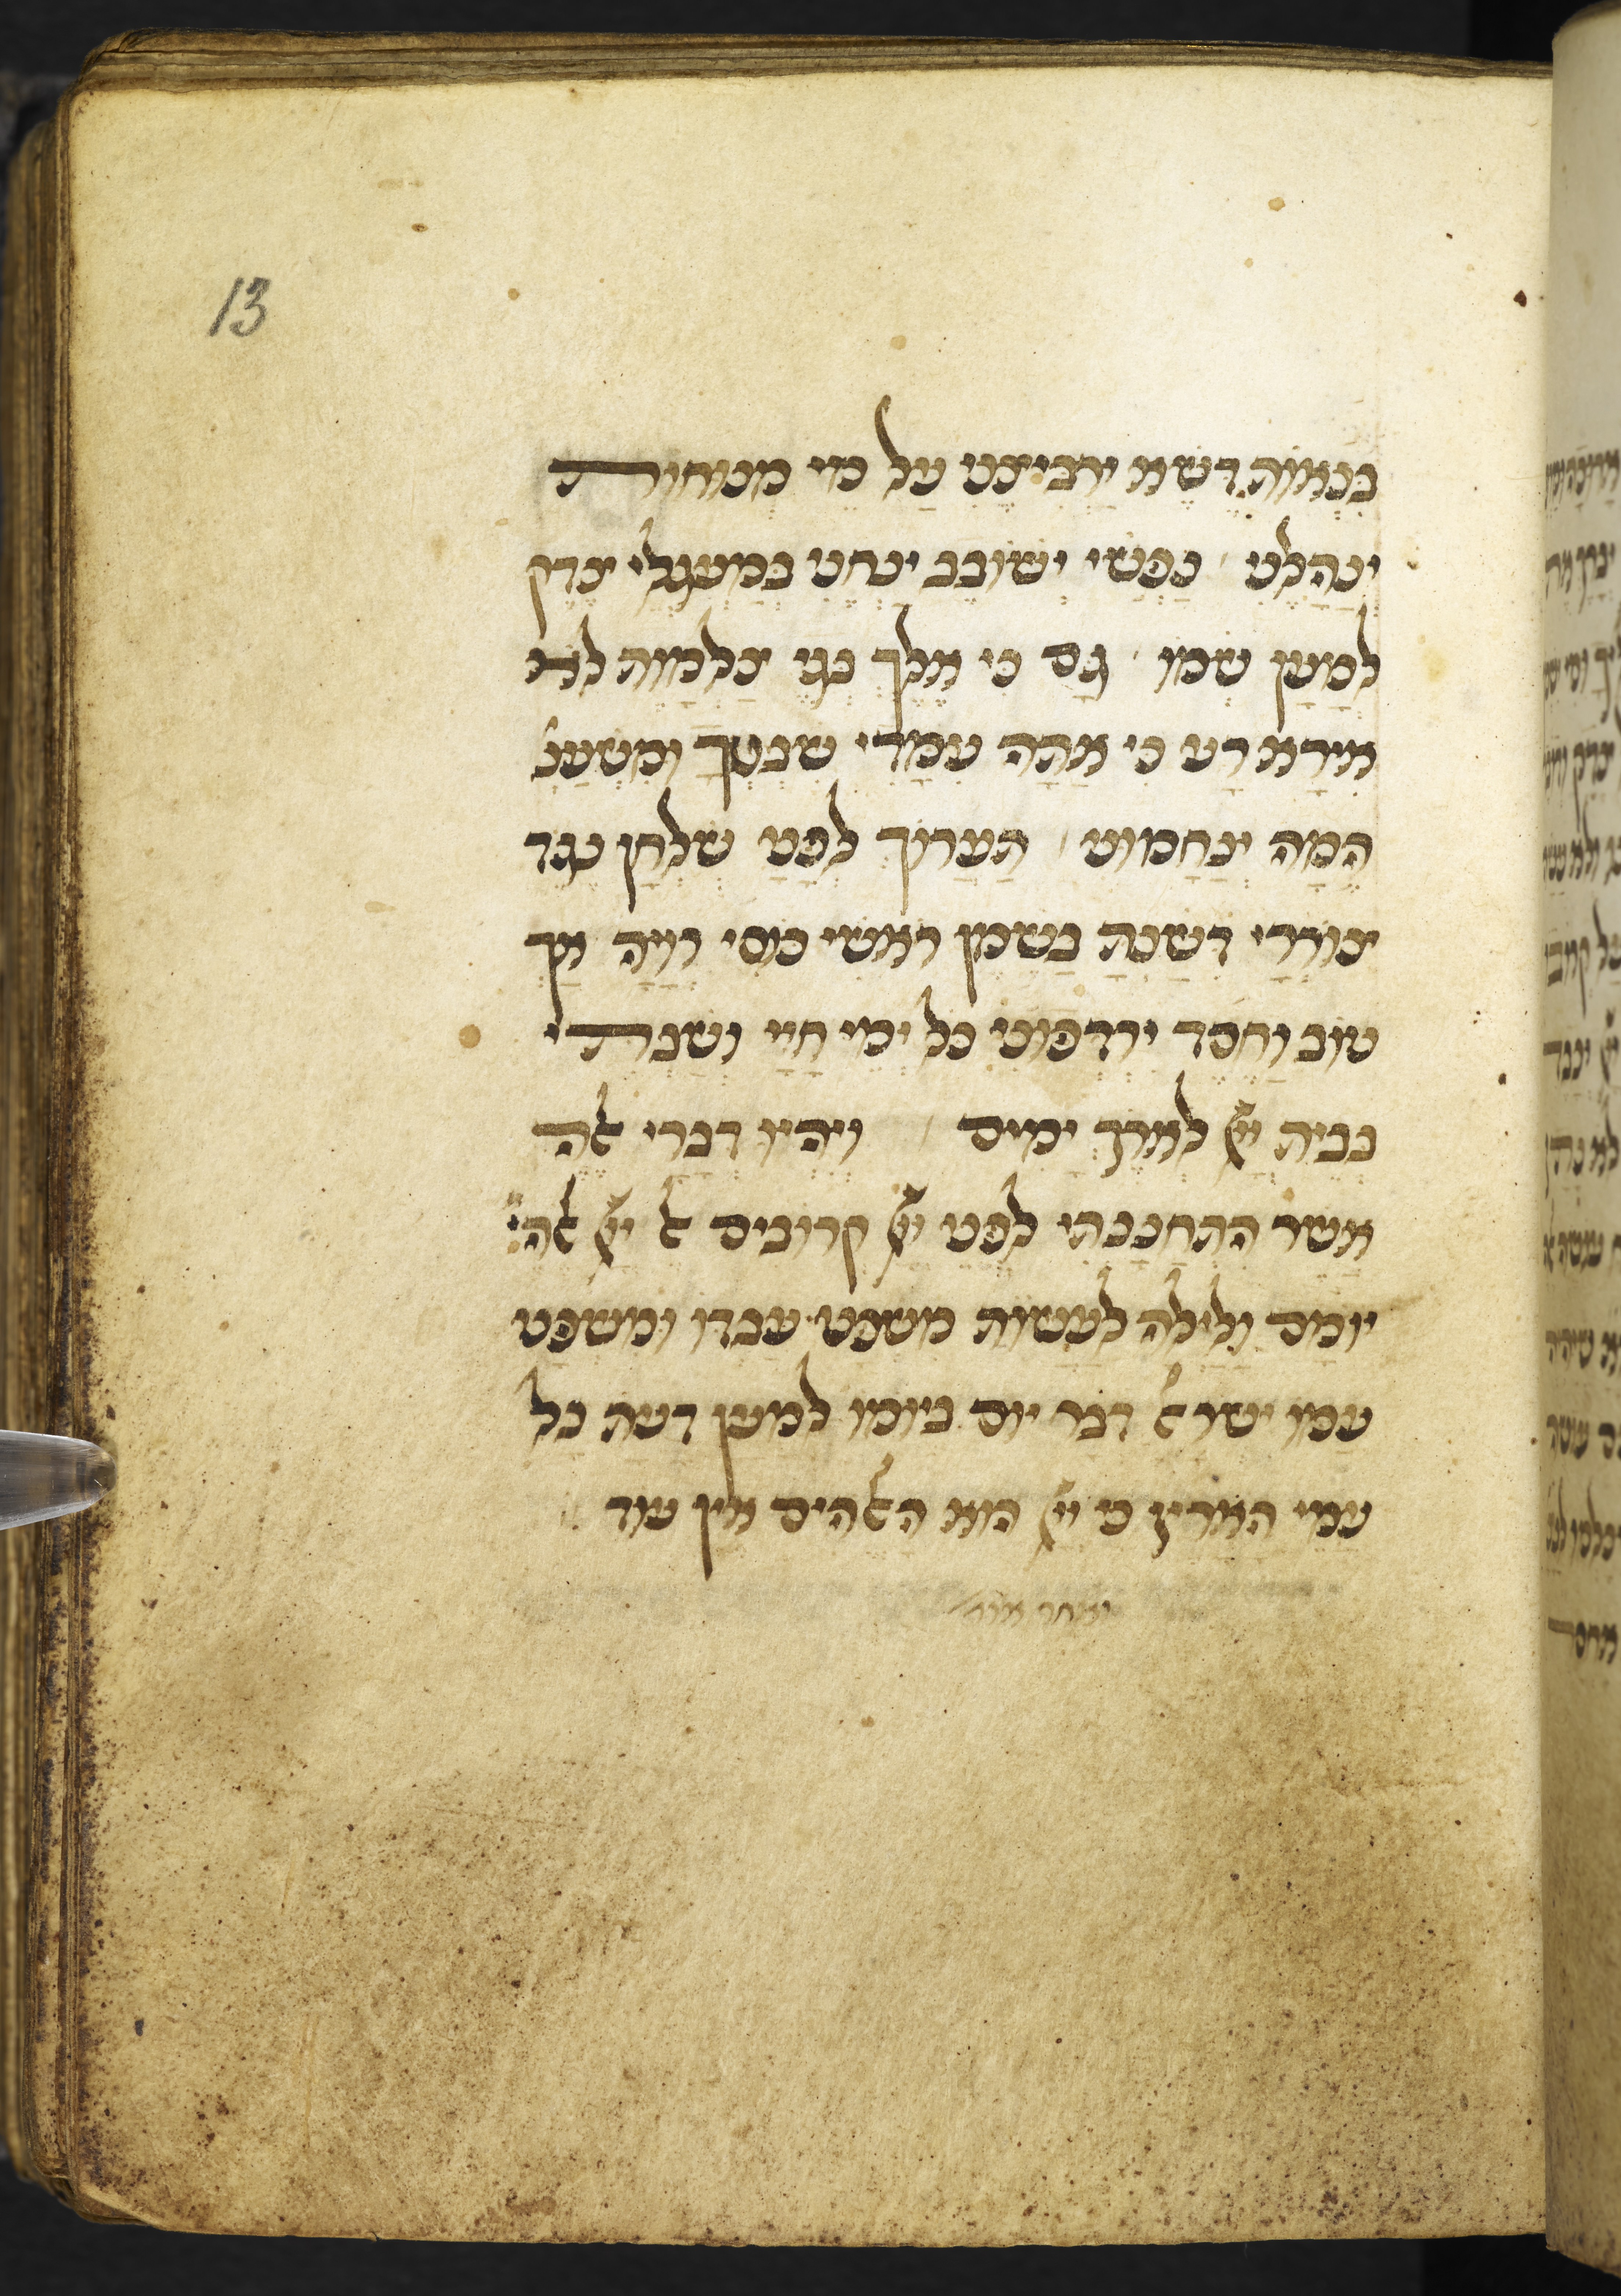 13
בִּנְאוֹת דֶּשֶׁא יַרְבִּיצֵנִי עַל מֵי מְנוּחוֹת
יְנַהֲלֵנִי נַפְשִׁי יְשׁוֹבֵב יַנְחֵנִי בְמַעְגְּלֵי צֶדֶק
לְמַעַן שְׁמוֹ גַּם כִּי אֵלֵךְ בְּגֵי צַלְמָוֶת לֹא
אִירָא רָע כִּי אַתָּה עִמָּדִי שִׁבְטְךָ וּמִשְׁעַנ
הֵמָּה יְנַחֲמוּנִי תַּעֲרוֹךְ לְפָנַי שֻׁלְחָן נֶגֶד
צוֹרְרָי דִּשַּׁנְתָּ בַשֶּׁמֶן רֹאשִׁי כּוֹסִי רְוָיָה אַךְ
טוֹב וָחֶסֶד יִרְדְּפוּנִי כָּל יְמֵי חַיָּי וְשַׁבְתִּי
בְּבֵית יְיָ לְאֹרֶךְ יָמִים וְיִהְיוּ דְבָרַי אֵלֶּה
אֲשֶׁר הִתְחַנַּנְתִּי לִפְנֵי יְיָ קְרוֹבִים אל יְיָ אלהי
יוֹמָם וָלַיְלָה לַעֲשׂוֹת מִשְׁפַּט עַבְדּוֹ וּמִשְׁפַּט
עַמּוֹ ישראל דְּבַר יוֹם בְּיוֹמוֹ לְמַעַן דַּעַת כָּל
עַמֵּי הָאָרֶץ כִּי יְיָ הוּא הָאלהים אֵין עוֹד